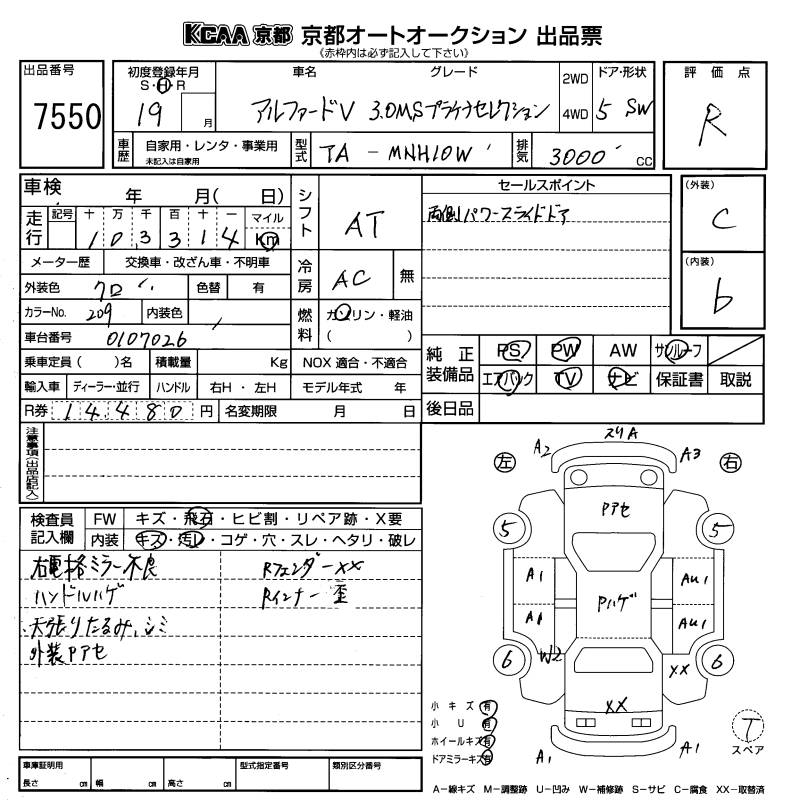 KCAA 京都 京都オートオークション 出品票
(赤枠内は必ず記入して下さい)
出品番号
7550
初度登録年月
S・H・R
19 月
車名 グレード
アルファードV 3.0MSプライナリセレクション
2WD
4WD
ドア・形状
5 SW
評価点
R
車歴
自家用・レンタ・事業用
未記入は自家用
型式
TA - MNH10W
排気
3000 CC
車検 年 月( 日)
走行
記号 十 万 千 百 十 一 マイル
1 0 3 3 1 4 Km
メーター歴 交換車・改ざん車・不明車
外装色 クロ 色替 有
カラーNo. 209 内装色
車台番号 0107026
乗車定員( )名 積載量 Kg NOX 適合・不適合
輸入車 ディーラー・並行 ハンドル 右H・左H モデル年式 年
R券 1 4 4 8 0 円 名変期限 月 日
シフト AT
冷房 AC 無
燃料 ガソリン・軽油
( )
セールスポイント
両側パワースライドドア
(外装)
C
(内装)
b
純正装備品
PS PW AW サンルーフ
エアバック TV ナビ 保証書 取説
後日品
注意事項(出品店記入)
検査員記入欄
FW キズ・飛石・ヒビ割・リペア跡・X要
内装 キズ・汚レ・コゲ・穴・スレ・ヘタリ・破レ
右電格ミラー不良
ハンドルハゲ
天張りたるみ、シミ
外装Pアセ
Rフェンダー××
Rインナー歪
左 右
A2 スリA A3
Pアセ
5 5
A1 AU1
Pハゲ
A1 AU1
6 W2 ×× 6
××
A1 A1
小キズ 有
小U 有
ホイールキズ 有
ドアミラーキズ 有
T
スペア
車庫証明用
長さ cm 幅 cm 高さ cm
型式指定番号
類別区分番号
A-線キズ M-調整跡 U-凹み W-補修跡 S-サビ C-腐食 XX-取替済